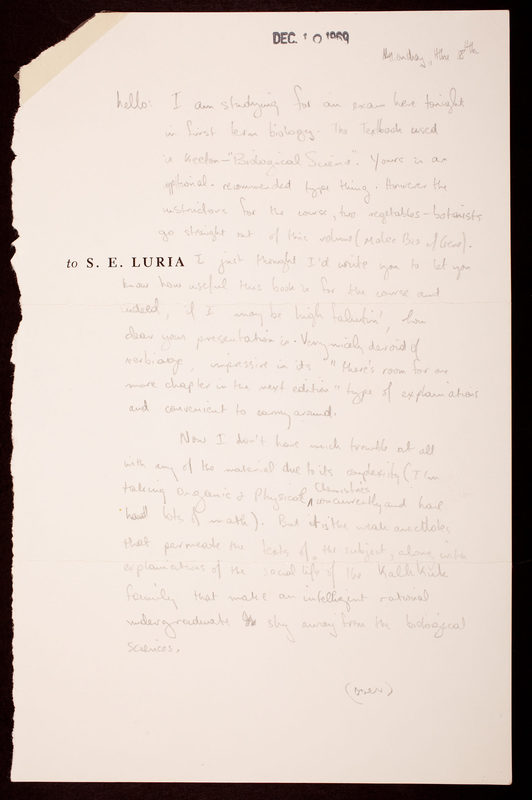 DEC. 10 1969
Monday, the 8th
hello: I am studying for an exam here tonight
in first term biology. The Textbook used
is Keeton-"Biological Science". Yours is an
optional - recommended type thing. However the
instructors for the course, two vegetables - botanists
go straight out of this volume (Molec Bio w/ Gene).
to S. E. LURIA I just thought I'd write you to let you
know how useful this book is for the course and
indeed, if I may be high falutin', how
clear your presentation is. Very nicely devoid of
verbiage, impressive in its "there's room for one
more chapter in the next edition" type of explanations
and convenient to carry around.
Now I don't have much trouble at all
with any of the material due to its complexity (I'm
taking Organic & Physical Chemistries concurrently and have
had lots of math). But it is the weak anecdotes
that permeate the texts of the subject, along with
explanations of the social life of the
family that make an intelligent rational
undergraduate shy away from the biological
sciences.
(over)